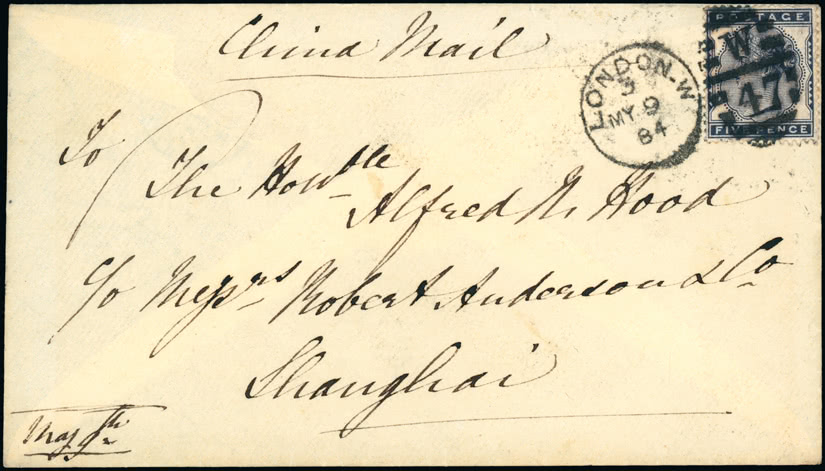 China Mail
POSTAGE
W
47
FIVE PENCE
LONDON·W
3
MY 9
84
To
The Honble
Alfred N. Hood
c/o Messrs Robert Anderson & Co
Shanghai
May 9th